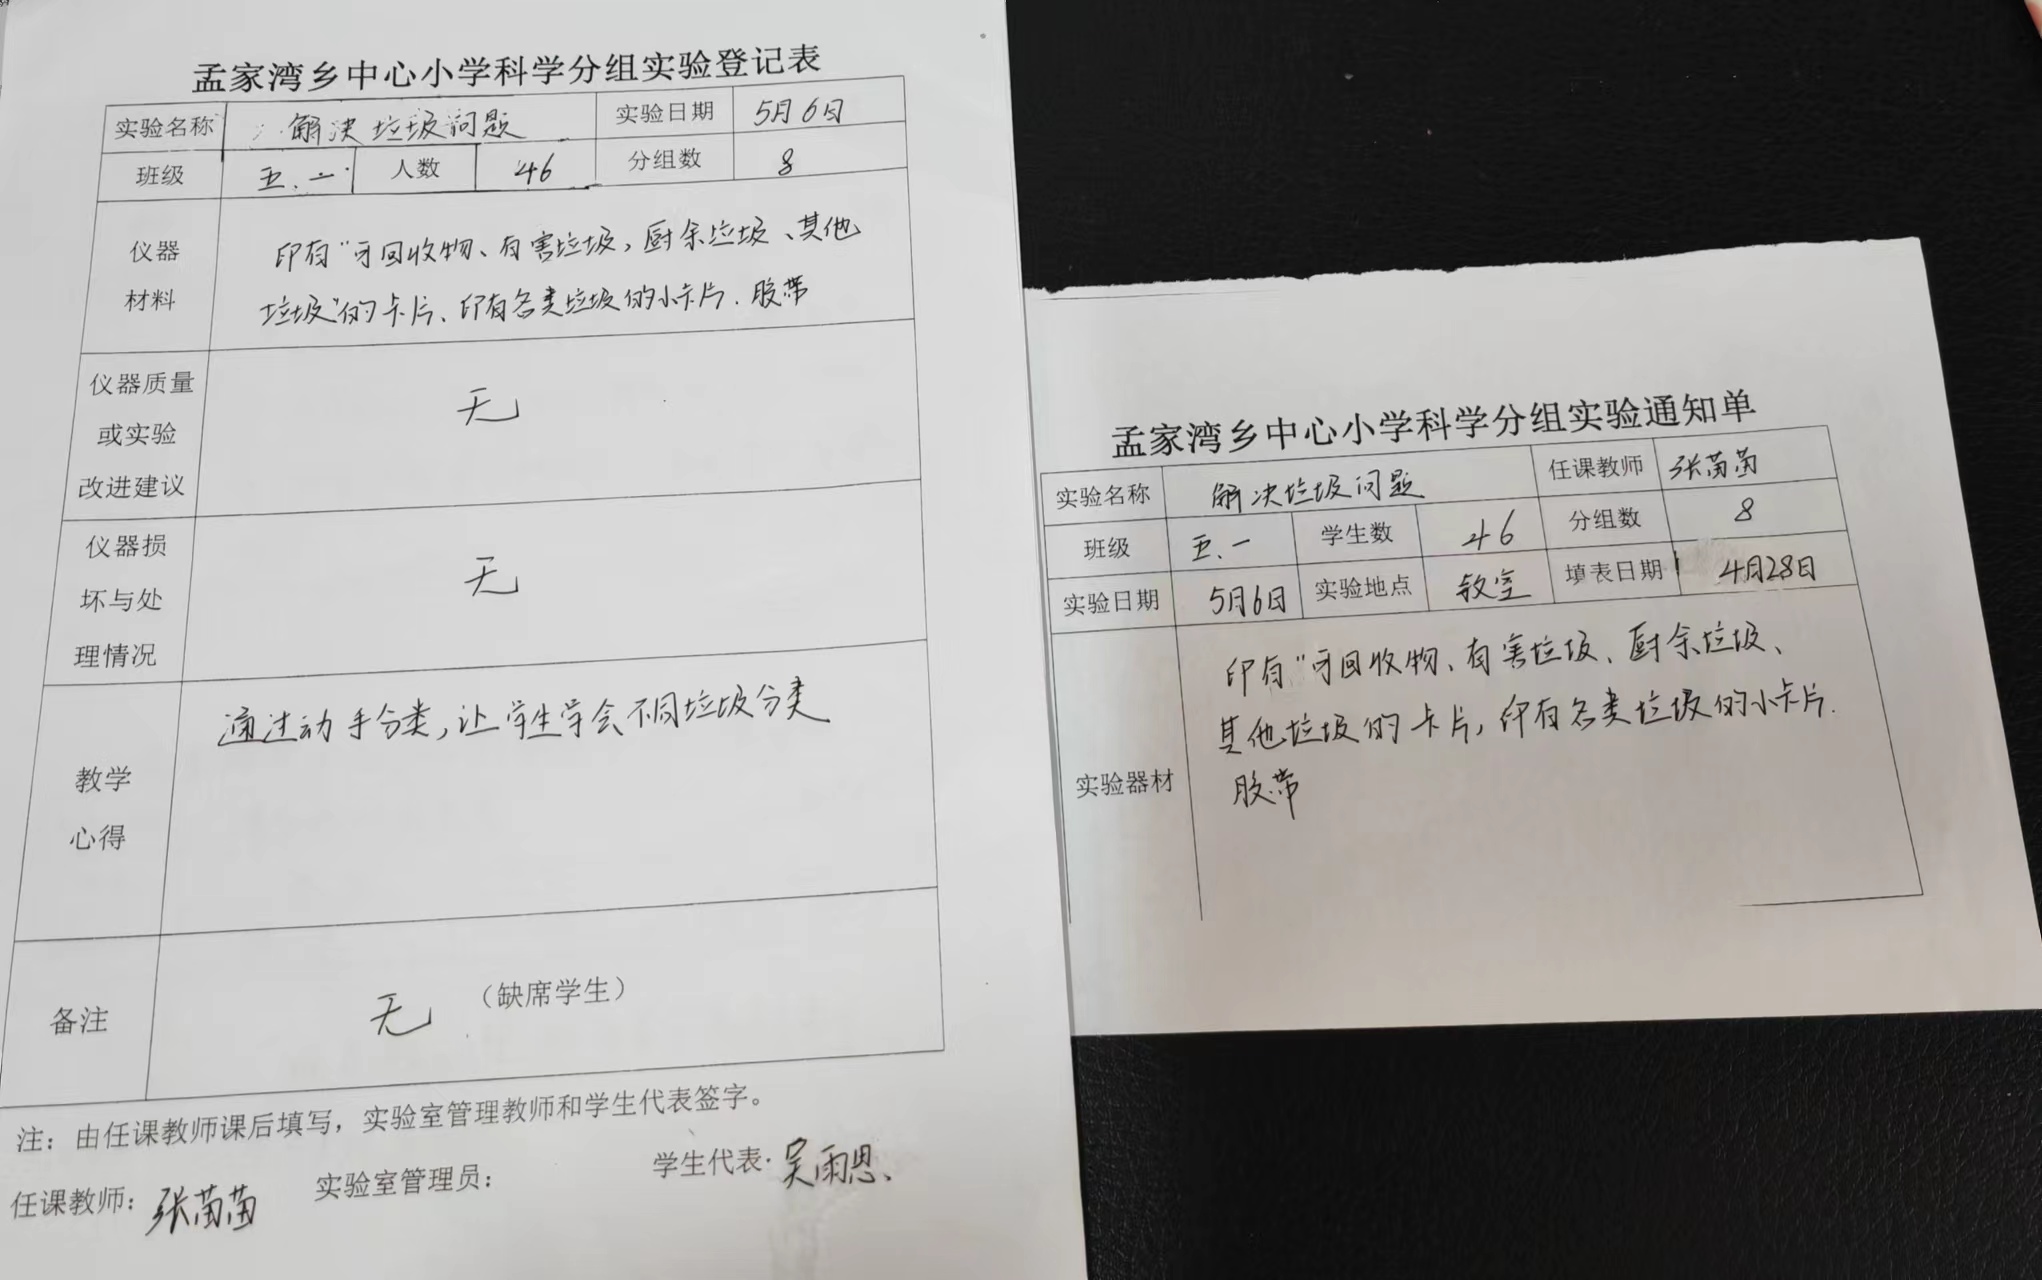 孟家湾乡中心小学科学分组实验登记表
实验名称 解决垃圾问题 实验日期 5月6日
班级 五.一 人数 46 分组数 8
仪器
材料
印有"可回收物、有害垃圾,厨余垃圾、其他
垃圾"的卡片、印有各类垃圾的小卡片.胶带
仪器质量
或实验
改进建议
无
仪器损
坏与处
理情况
无
教学
心得
通过动手分类,让学生学会不同垃圾分类
备注
无 (缺席学生)
注:由任课教师课后填写,实验室管理教师和学生代表签字。
任课教师: 张苗苗 实验室管理员: 学生代表: 吴雨思、
孟家湾乡中心小学科学分组实验通知单
实验名称 解决垃圾问题 任课教师 张苗苗
班级 五.一 学生数 46 分组数 8
实验日期 5月6日 实验地点 教室 填表日期 4月28日
实验器材
印有"可回收物、有害垃圾、厨余垃圾、
其他垃圾的卡片,印有各类垃圾的小卡片.
胶带